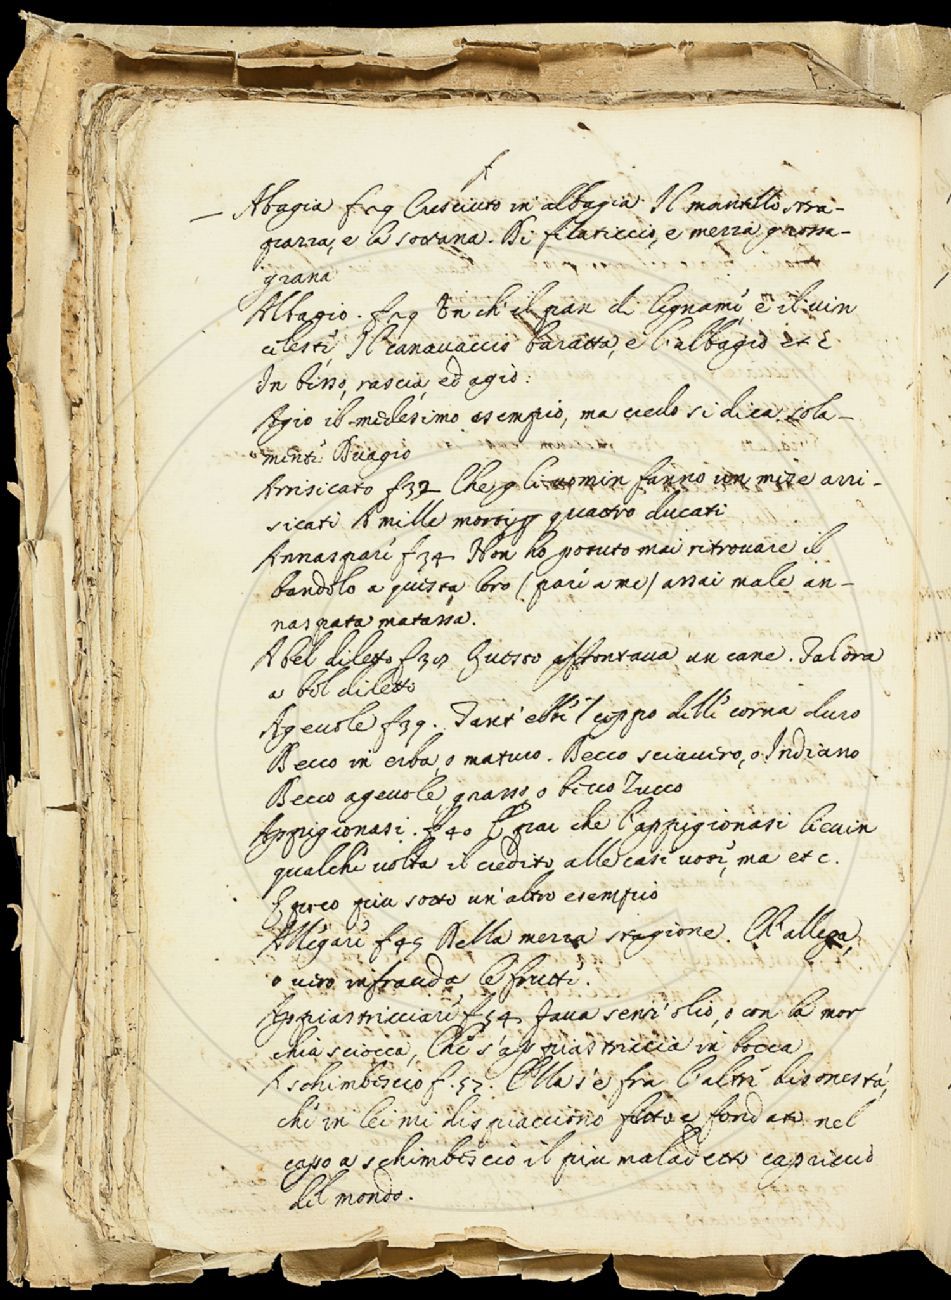 A
Abagia f 29 Cresciuto in albagia. Il mantello stra-
pazza, e la sottana. Di filaticcio, e mezza grossa-
grana
Albagio. f 29 In ch' il pan di legnami è il vin
celesti, Il canavaccio baratta, e l'albagio etc
In bisso, rascia, ed agio:
Agio il medesimo esempio, ma credo si dica sola-
menti Buagio
Arrisicato f 32 Che gli uomin fanno un mese arri-
sicati A mille morti quattro ducati
Annaspari f 34 Non ho potuto mai ritrovare il
bandolo a questa loro (pari a me) assai male an-
naspata matassa.
A bel diletto f 38 Questo affrontava un cane. Talora
a bel diletto
Agevole f 39. Tant' ebbi 'l ceppo delle corna duro
Becco in erba, o maturo. Becco o Indiano
Becco agevole, grasso, o becco Zucco
Appigionasi. f 40 E par che l'appigionasi lievin
qualchi volta il credito alle casi voti, ma etc.
E poco piu sotto un'altro esempio
Allegari f 45 Della mezza stagione. Ch'allega,
o vero infrauda le frutti.
Appiastricciari f 54 Fava senz'olio, o con la mor
chia sciocca, Che s'appiastriccia in bocca
Aschimbescio f. 57. Ella s'è fra l'altri disonestà,
chi in lei mi dispiacciono fitto e fondato nel
capo a schimbescio il piu maladetto capriccio
del mondo.